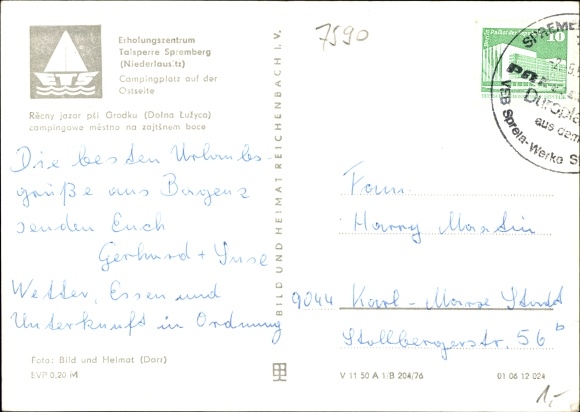 7590
Erholungszentrum
Talsperre Spremberg
(Niederlausitz)
Campingplatz auf der
Ostseite
Rěcny jazor pśi Grodku (Dolna Łužyca)
campingowe městno na zajtšnem boce
Die besten Urlaubs-
grüße aus Bagenz
senden Euch
Gerhard + Inse
Wetter, Essen und
Unterkunft in Ordnung
Foto: Bild und Heimat (Darr)
EVP 0,20 M
BILD UND HEIMAT REICHENBACH I. V.
10
SPREMB
Duropla
aus dem
VEB Sprela-Werke S
Fam.
Harry Martin
9044 Karl-Marx-Stadt
Stollbergerstr. 56 b
V 11 50 A 1/B 204/76
01 06 12 024
1,-